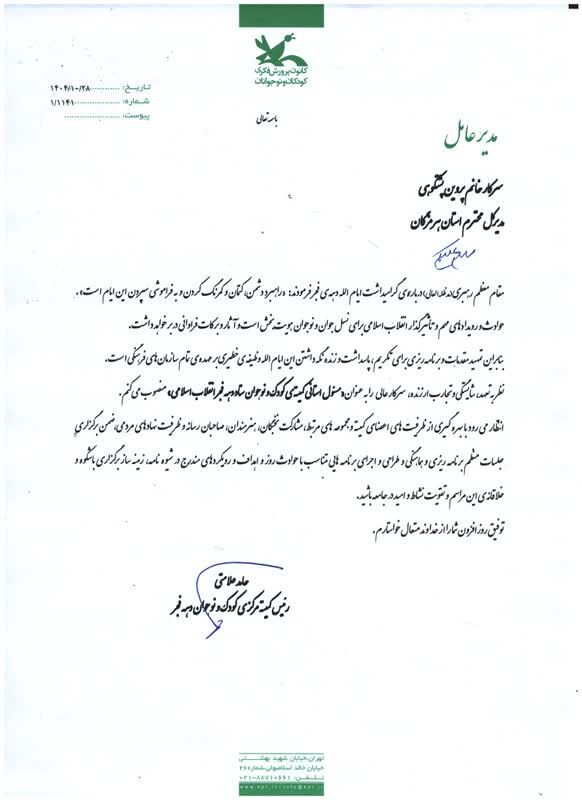 کانون پرورش فکری
کودکان و نوجوانان
تاریخ: ۱۴۰۴/۱۰/۲۸
شماره: ۱/۱۱۴۱
پیوست:
باسمه تعالی
مدیر عامل
سرکار خانم پروین پشتکوهی
مدیرکل محترم استان هرمزگان
مقام معظم رهبری (مدظله العالی) درباره‌ی گرامیداشت ایام الله دهه‌ی فجر فرمودند: «راهبرد دشمن، کتمان و کمرنگ کردن و به فراموشی سپردن این ایام است».
حوادث و رویدادهای مهم و تأثیرگذار انقلاب اسلامی برای نسل جوان و نوجوان هویت بخش است و آثار و برکات فراوانی در بر خواهد داشت.
بنابراین تمهید مقدمات و برنامه ریزی برای تکریم، پاسداشت و زنده نگه داشتن این ایام الله وظیفه‌ی خطیری بر عهده‌ی تمام سازمان های فرهنگی است.
نظر به تعهد، شایستگی و تجارب ارزنده، سرکار عالی را به عنوان «مسئول استانی کمیته‌ی کودک و نوجوان ستاد دهه فجر انقلاب اسلامی» منصوب می کنم.
انتظار می رود با بهره گیری از ظرفیت های اعضای کمیته و مجموعه های مرتبط، مشارکت نخبگان، هنرمندان، صاحبان رسانه و ظرفیت نهادهای مردمی، ضمن برگزاری
جلسات منظم برنامه ریزی و هماهنگی و طراحی و اجرای برنامه هایی متناسب با حوادث روز و اهداف و رویکردهای مندرج در شیوه نامه، زمینه ساز برگزاری باشکوه و
خلاقانه‌ی این مراسم و تقویت نشاط و امید در جامعه باشید.
توفیق روز افزون شما را از خداوند متعال خواستارم.
حامد علامتی
رئیس کمیته مرکزی کودک و نوجوان دهه فجر
تهران، خیابان شهید بهشتی
خیابان خالد اسلامبولی، شماره ۲۶
تلفن: ۸۸۷۱۰۶۶۱-۰۲۱